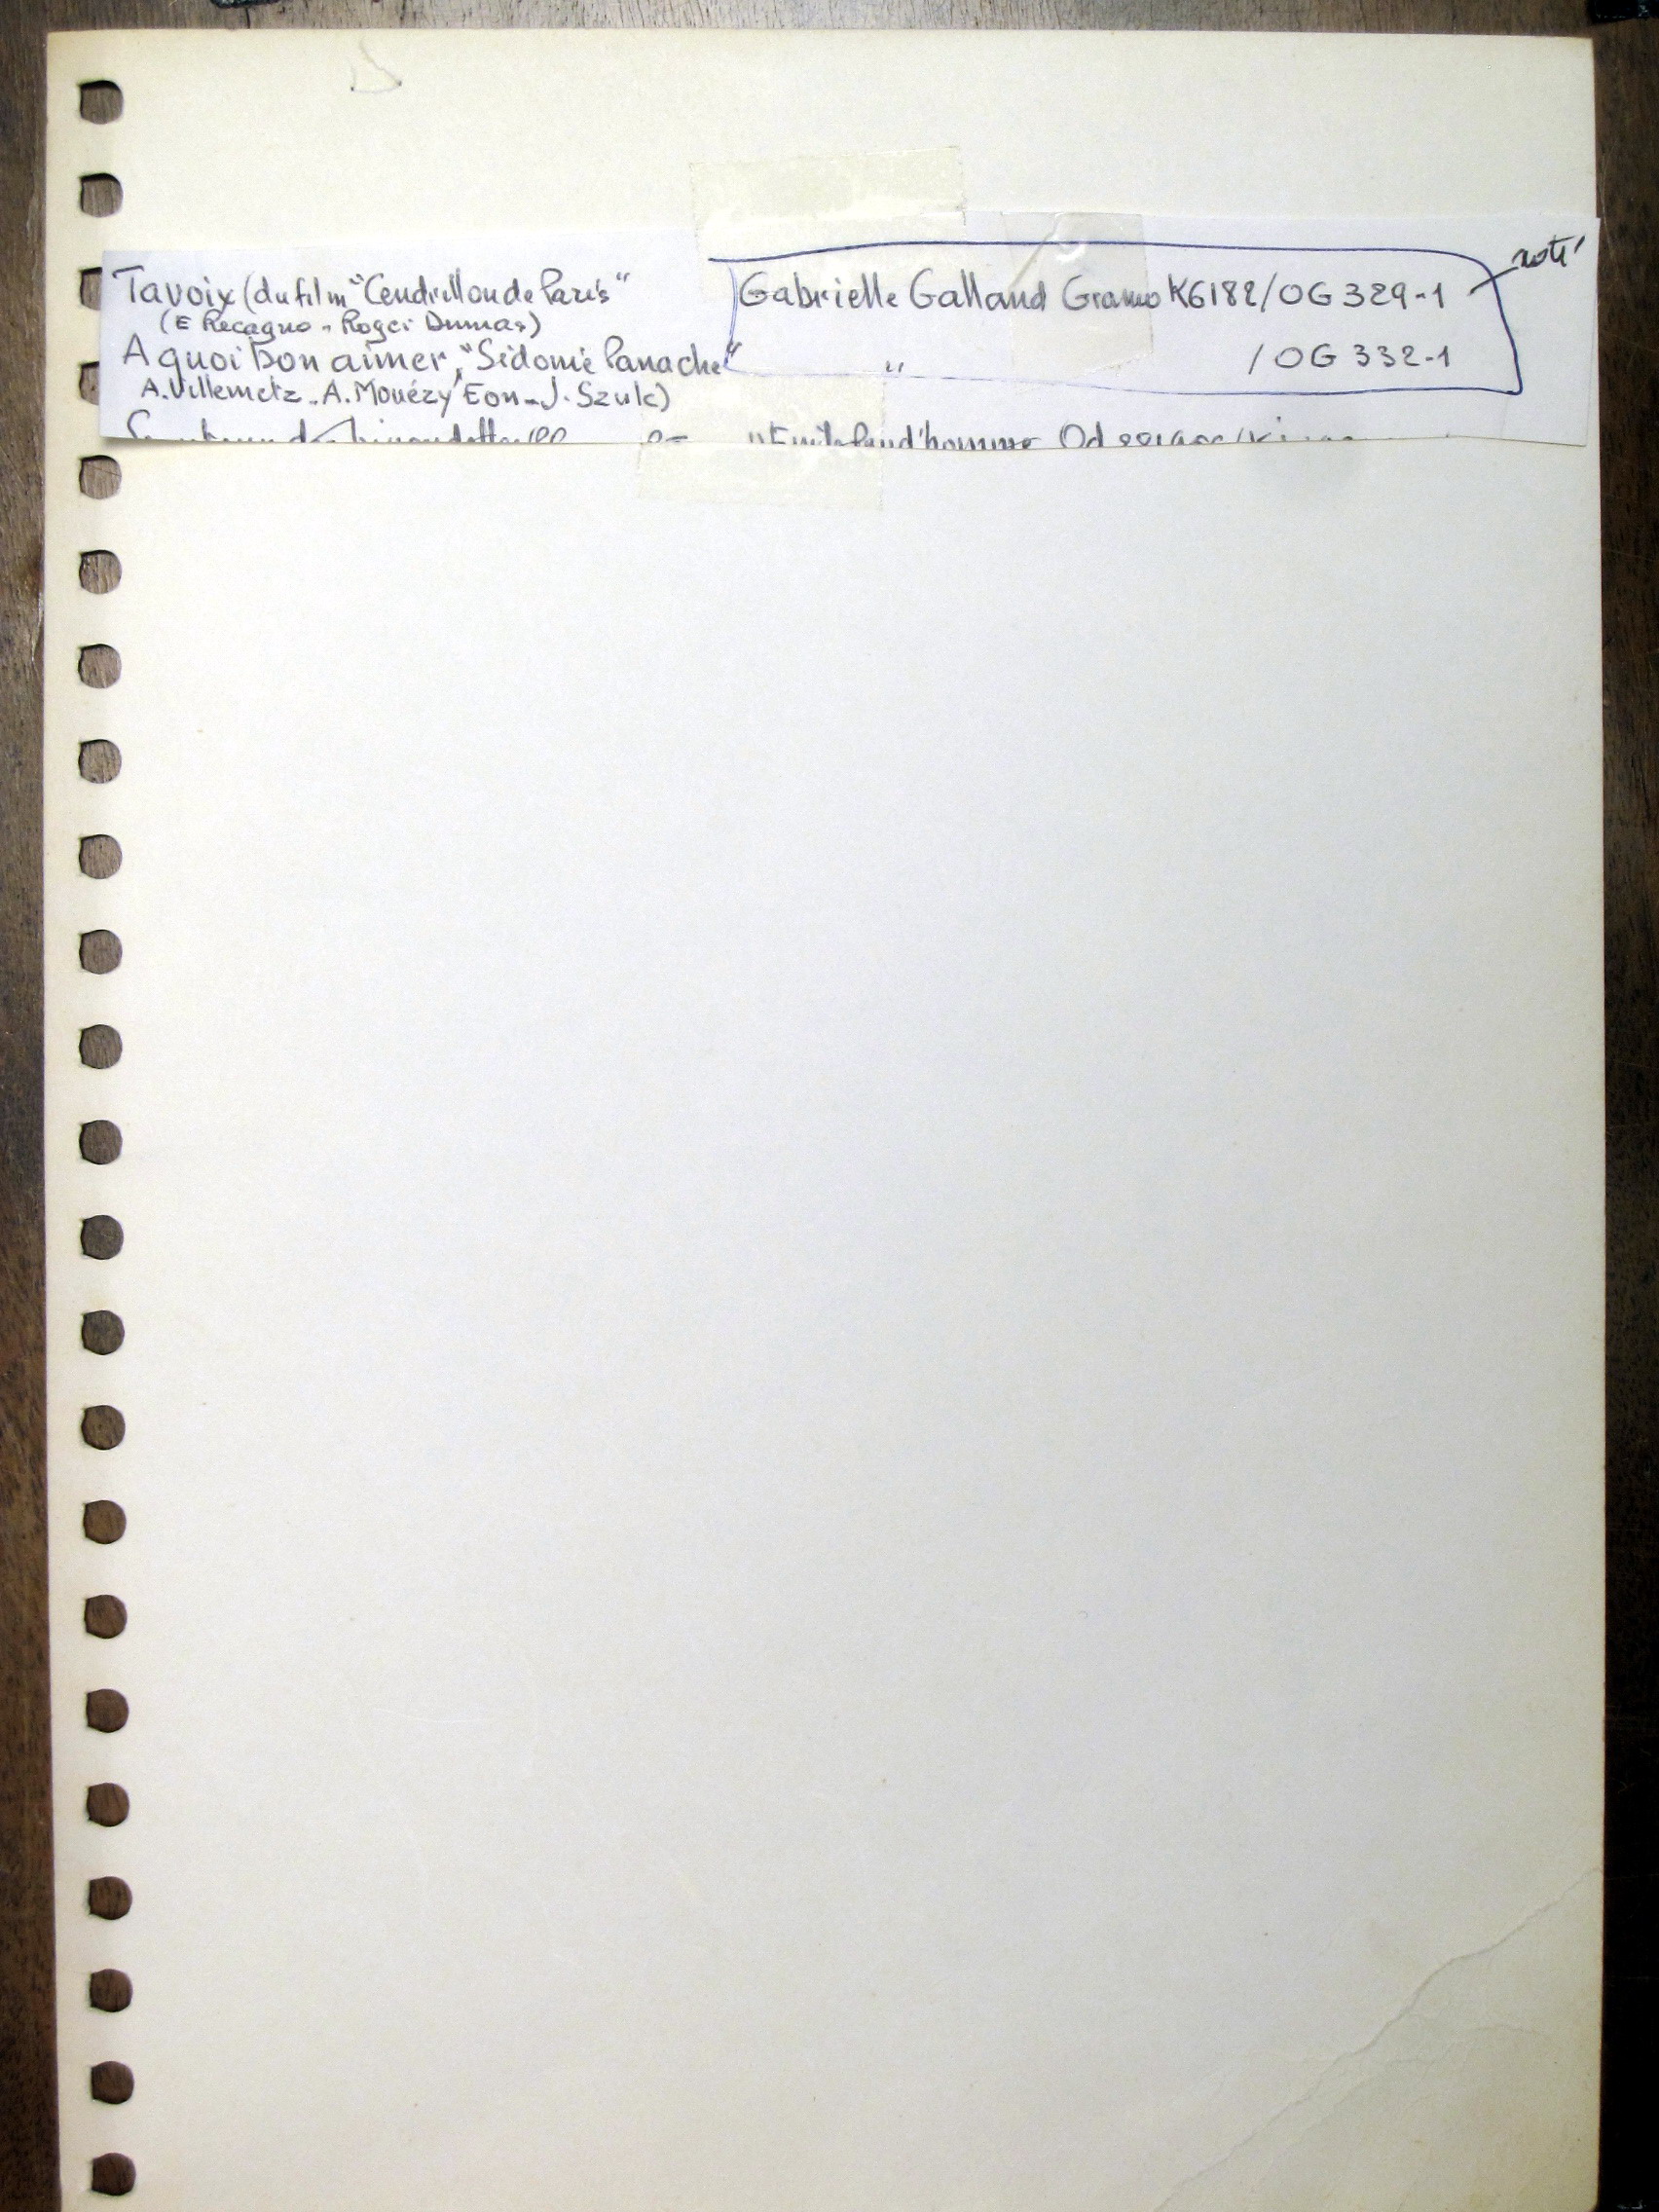 noté
Ta voix (du film "Cendrillon de Paris" Gabrielle Galland Gramo K6182/OG 329-1
(E Recagno - Roger Dumas)
A quoi bon aimer, "Sidonie Panache" " /OG 332-1
A. Villemetz - A. Mouézy Eon - J. Szulc)
d'homme